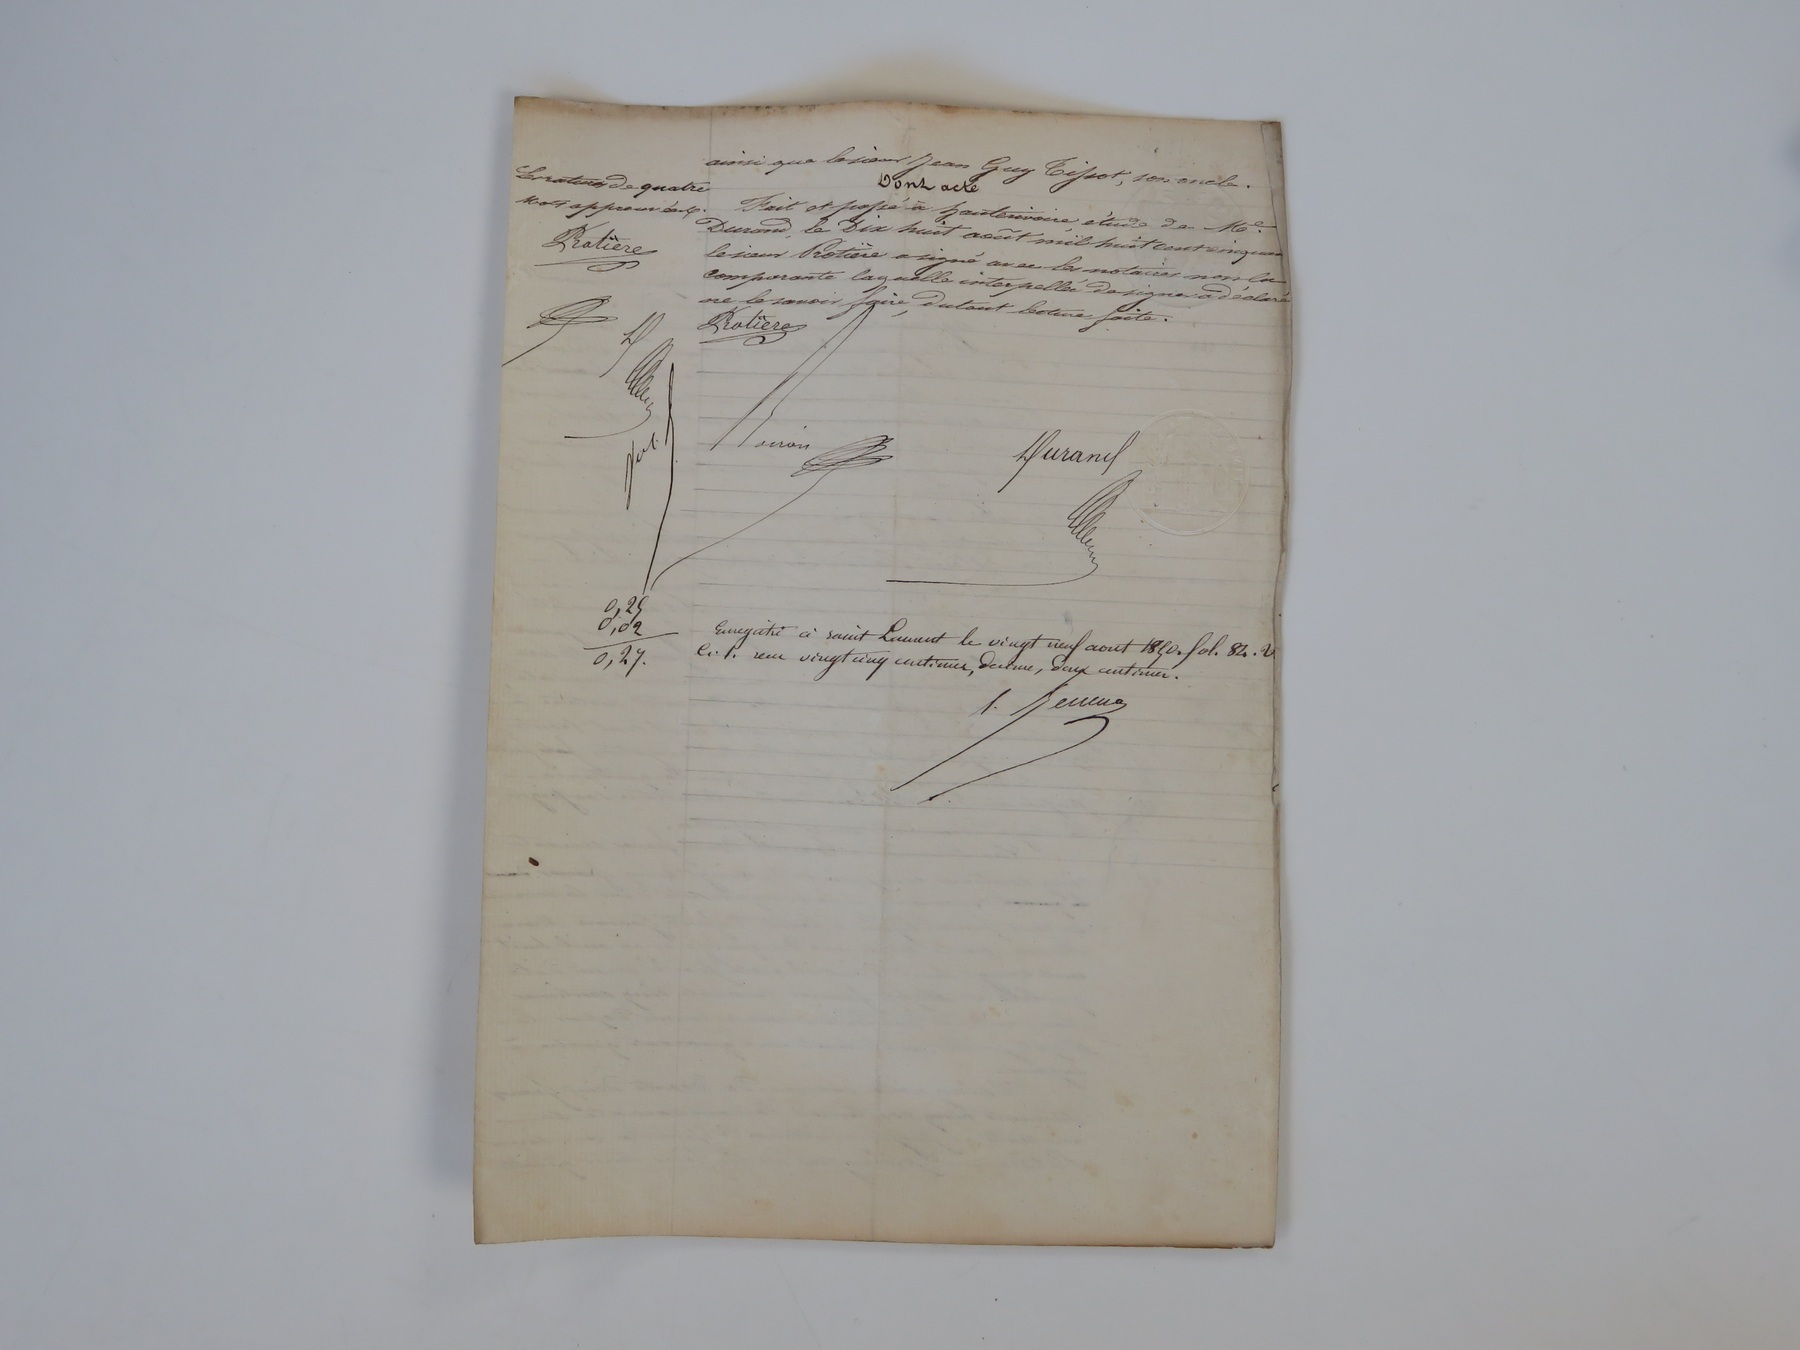 ainsi que le sieur Jean Guy Tissot, son oncle.
Dont acte
La rature de quatre
mots approuvée.
Protière
Fait et passé à hauterivoire, étude de Me
Durand, le dix huit août mil huit cent cinquante
le sieur Protière a signé avec les notaires non la
comparante laquelle interpellée de signer a déclaré
ne le savoir faire, du tout lecture faite.
Protière
Durand
0,25
0,02
0,27.
Enregistré à saint Laurent le vingt neuf aout 1850. fol. 82. v
C. 1. reçu vingt cinq centimes, décime, deux centimes.